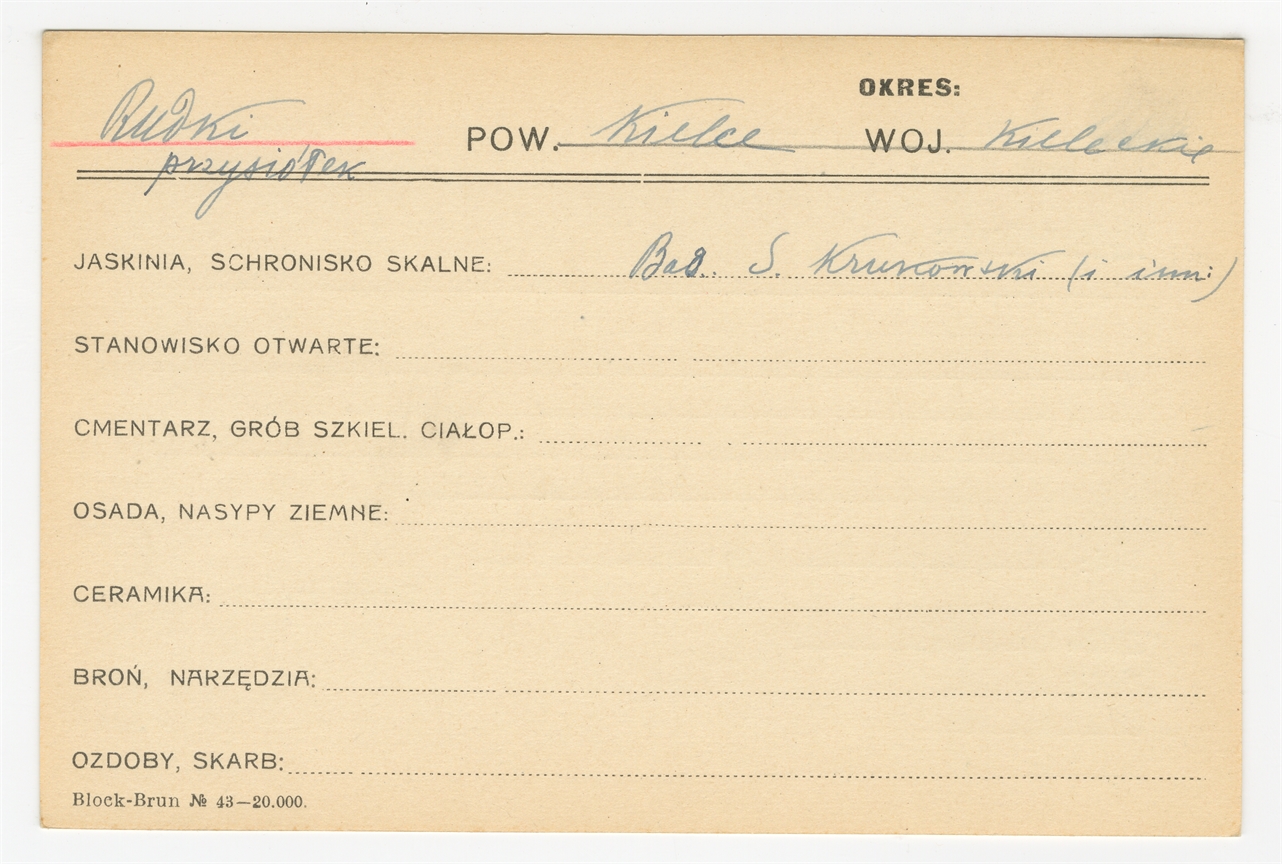 OKRES:
Rudki POW. Kielce WOJ. Kieleckie
przysiółek
JASKINIA, SCHRONISKO SKALNE: Bad. S. Krukowski (i inni)
STANOWISKO OTWARTE:
CMENTARZ, GRÓB SZKIEL. CIAŁOP.:
OSADA, NASYPY ZIEMNE:
CERAMIKA:
BROŃ, NARZĘDZIA:
OZDOBY, SKARB:
Block-Brun № 43—20.000.